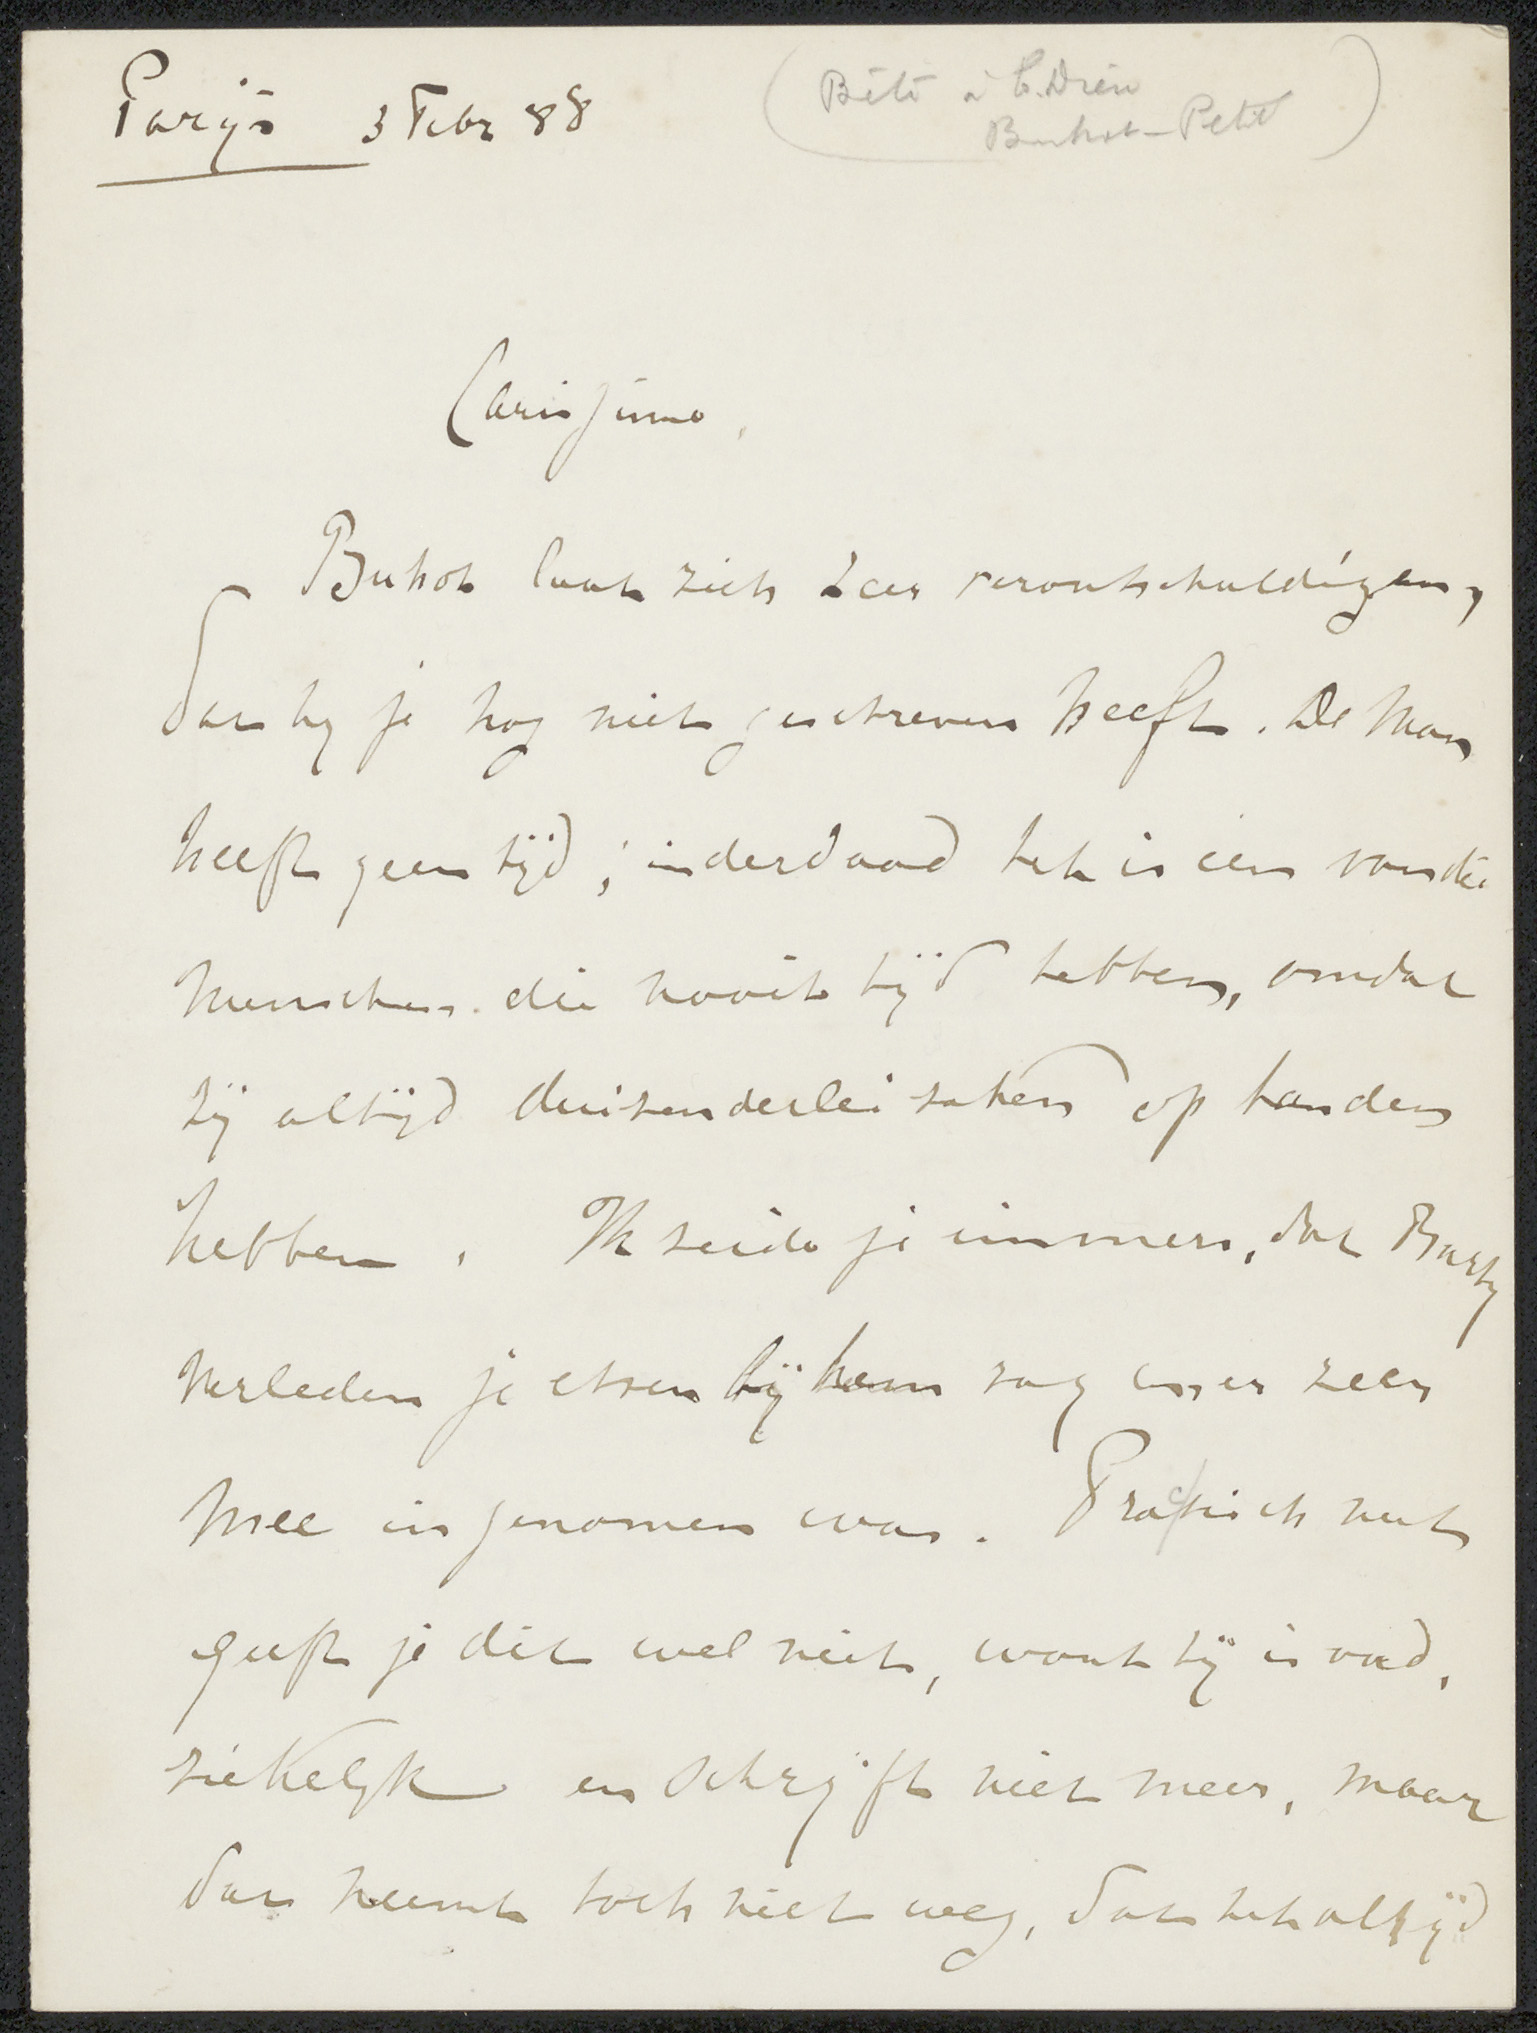 Parijs 3 Febr 88
Buhot - Petit
Carissimo,
Buhot laat zich zeer verontschuldigen,
dat hij je nog niet geschreven heeft. De man
heeft geen tijd; inderdaad het is een van die
menschen die nooit tijd hebben, omdat
zij altijd duizenderlei zaken op handen
hebben. Ik zeide je immers, dat Burty
verleden je etsen bij hem zag en er zeer
mee ingenomen was. Practisch nut
geeft je dit wel niet, want hij is oud,
ziekelijk en schrijft niet meer, maar
dat neemt toch niet weg, dat het altijd